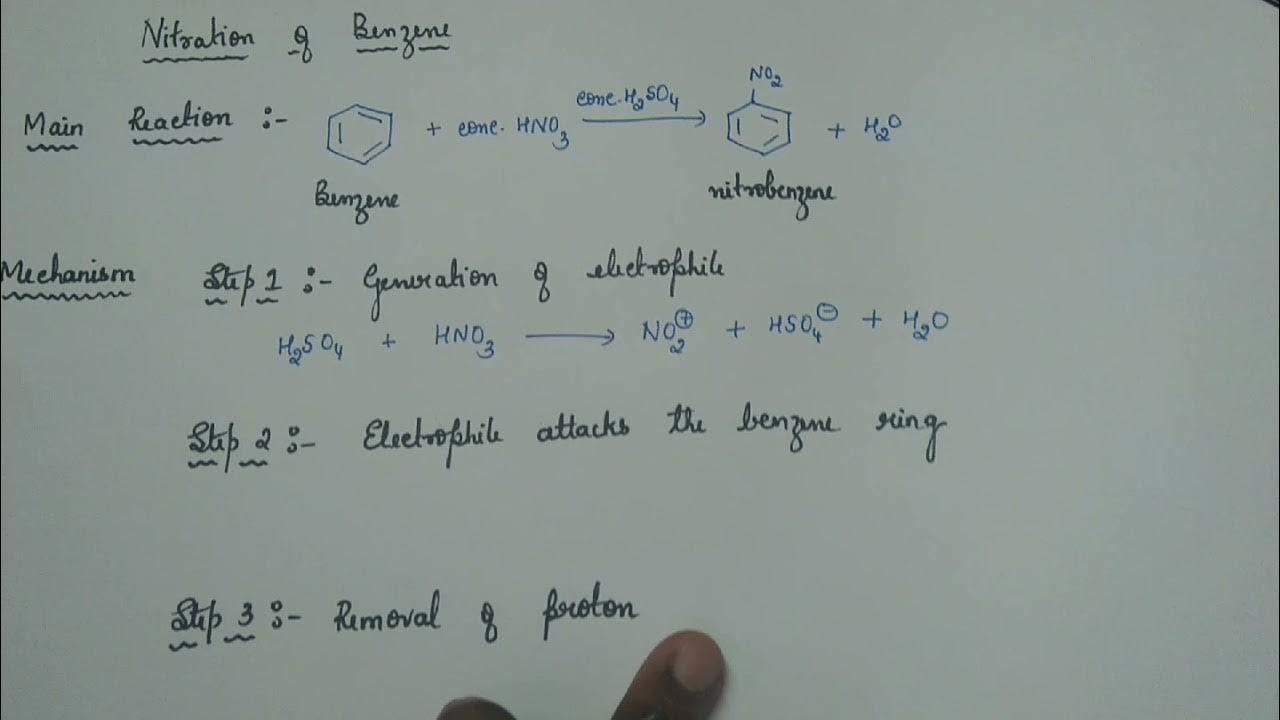 Nitration of Benzene
NO2
Main Reaction :- + conc. HNO3 conc. H2SO4 → + H2O
Benzene nitrobenzene
Mechanism Step 1 :- Generation of electrophile
H2SO4 + HNO3 → NO2⊕ + HSO4⊖ + H2O
Step 2 :- Electrophile attacks the benzene ring
Step 3 :- Removal of proton